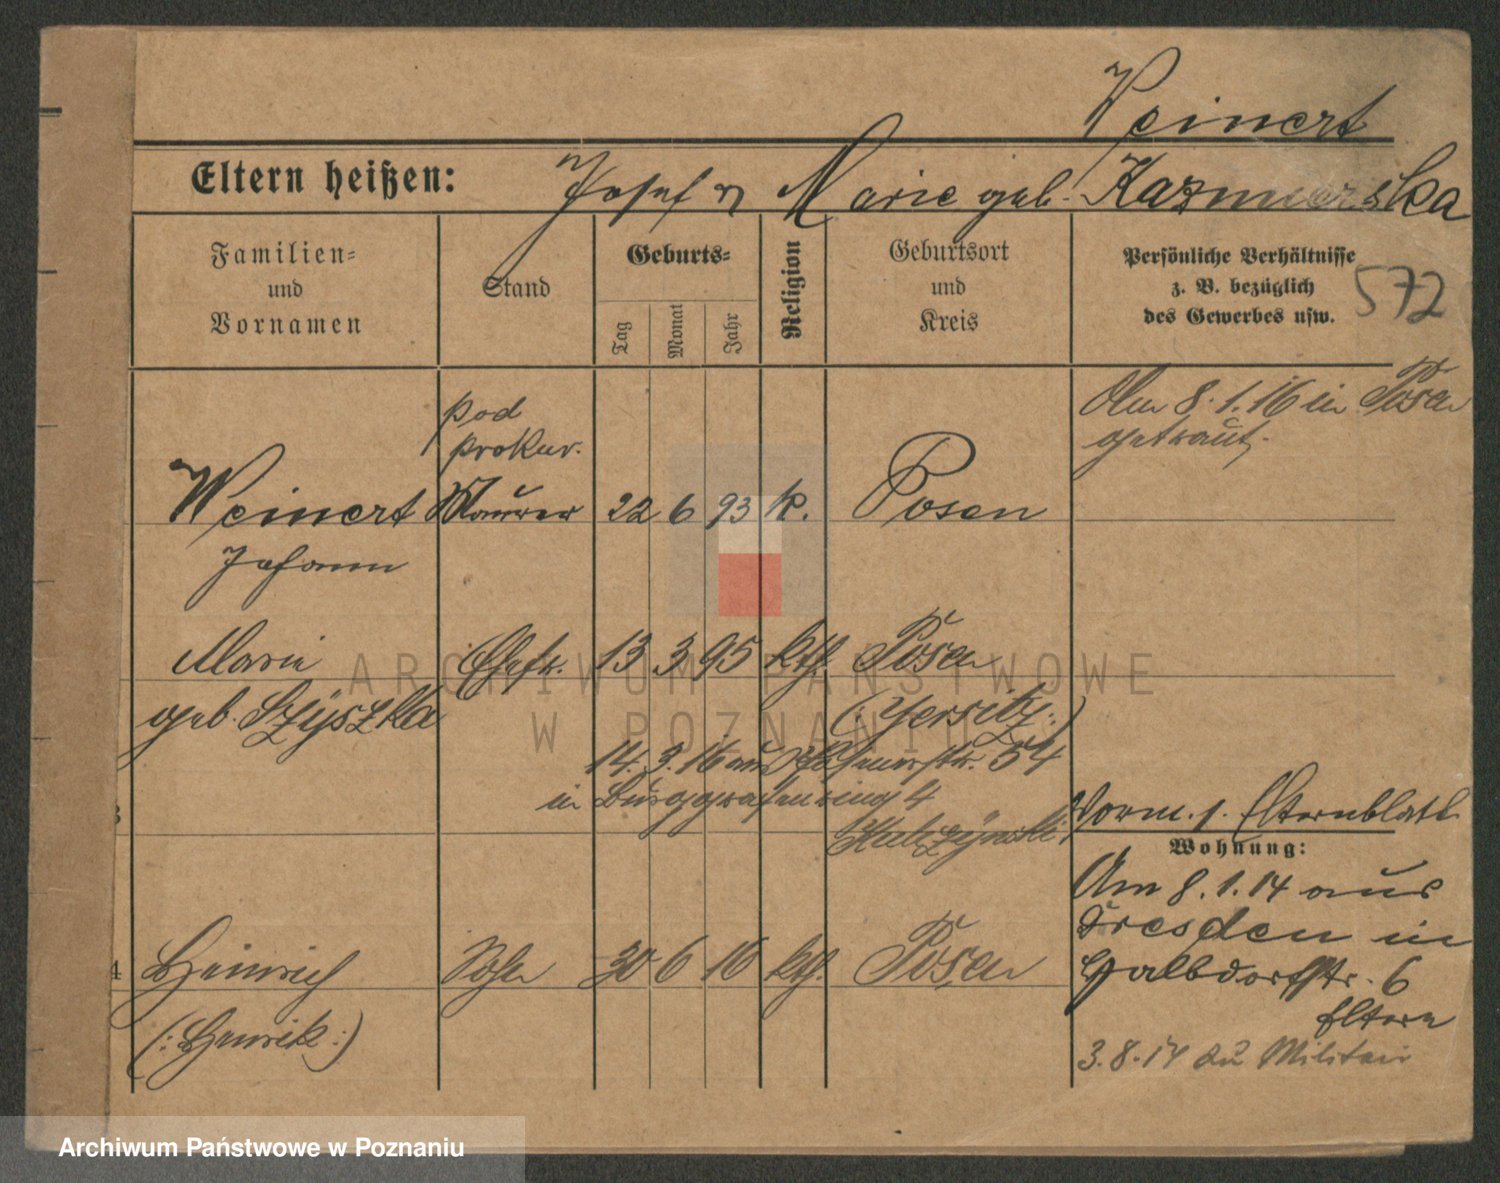 Weinert
Eltern heißen: Josef u Marie geb. Kazmierska
Familien=
und
Vornamen
Stand
Geburts=
Tag
Monat
Jahr
Religion
Geburtsort
und
Kreis
Persönliche Verhältnisse
z. B. bezüglich
des Gewerbes usw.
572
Am 8.1.16 in Posen
getraut.
pod
prokur.
Weinert Maurer 22 6 93 k. Posen
Johann
Marie Ehefr. 13 3 95 kth. Posen
geb. Szyszka (:Jersitz:)
14. 3. 16 aus 54
in Burggrafenring 4
Vorm. s. Elternblatt
3
Wohnung:
Am 8.1.14 aus
Dresden in
Halbdorfstr. 6
Eltern
3.8.14 zu Militair
4 Heinrich Sohn 30 6 16 kth. Posen
(:Henrik:)
ARCHIWUM PAŃSTWOWE
W POZNANIU
Archiwum Państwowe w Poznaniu